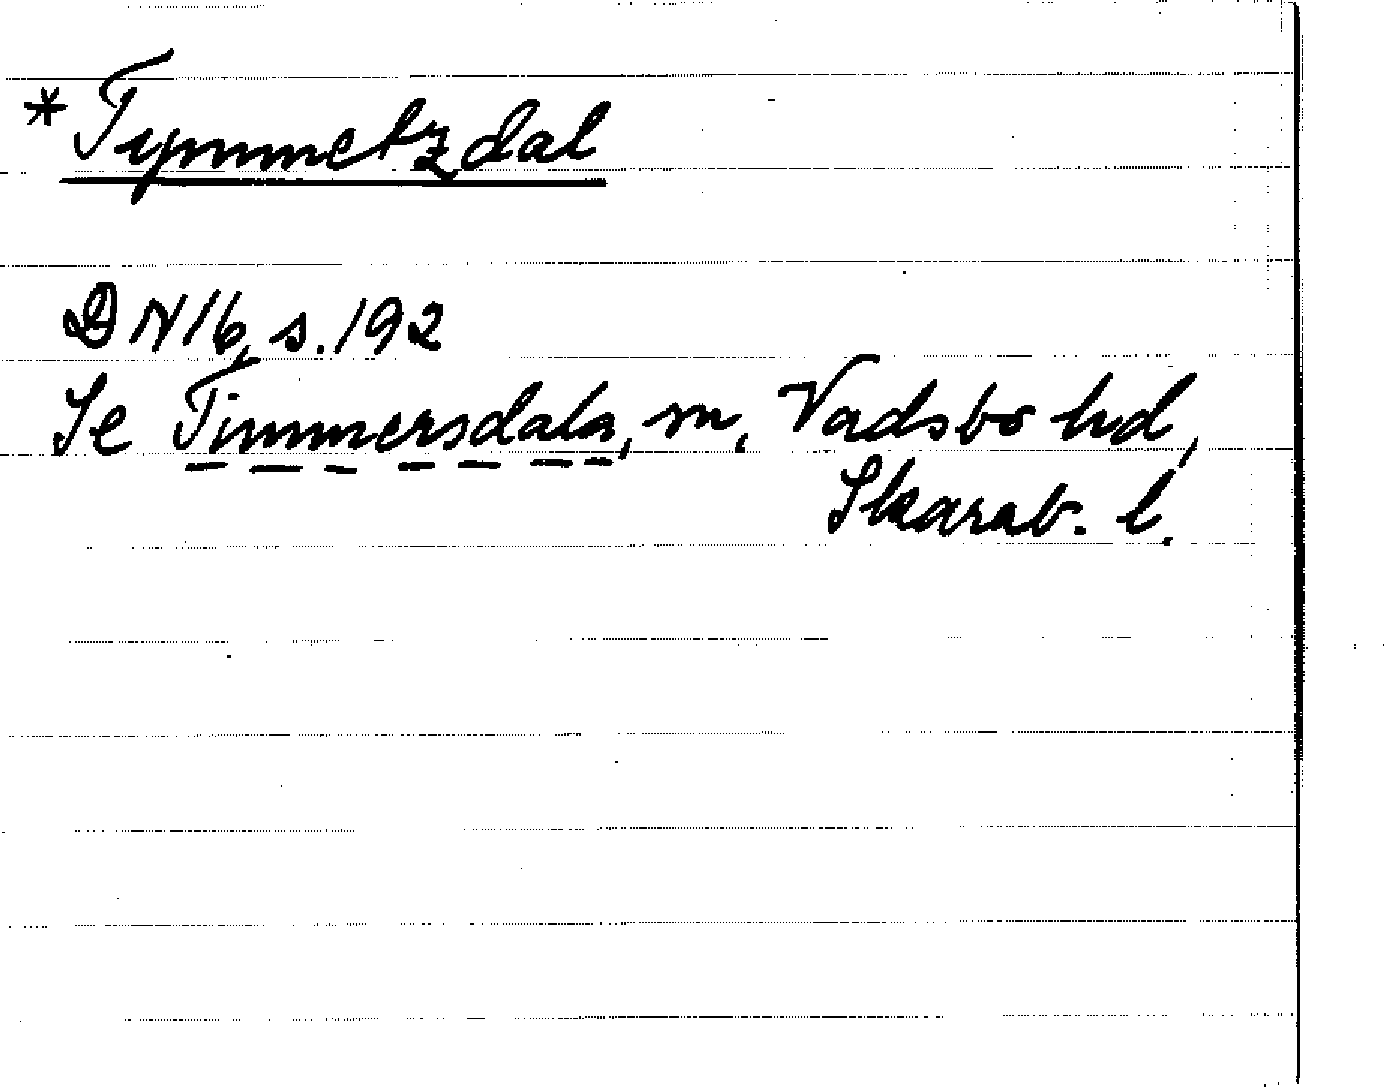 *Tymmetzdal
DN16, s. 192
Se Timmersdala, sn, Vadsbo hd,
Skarab. l.